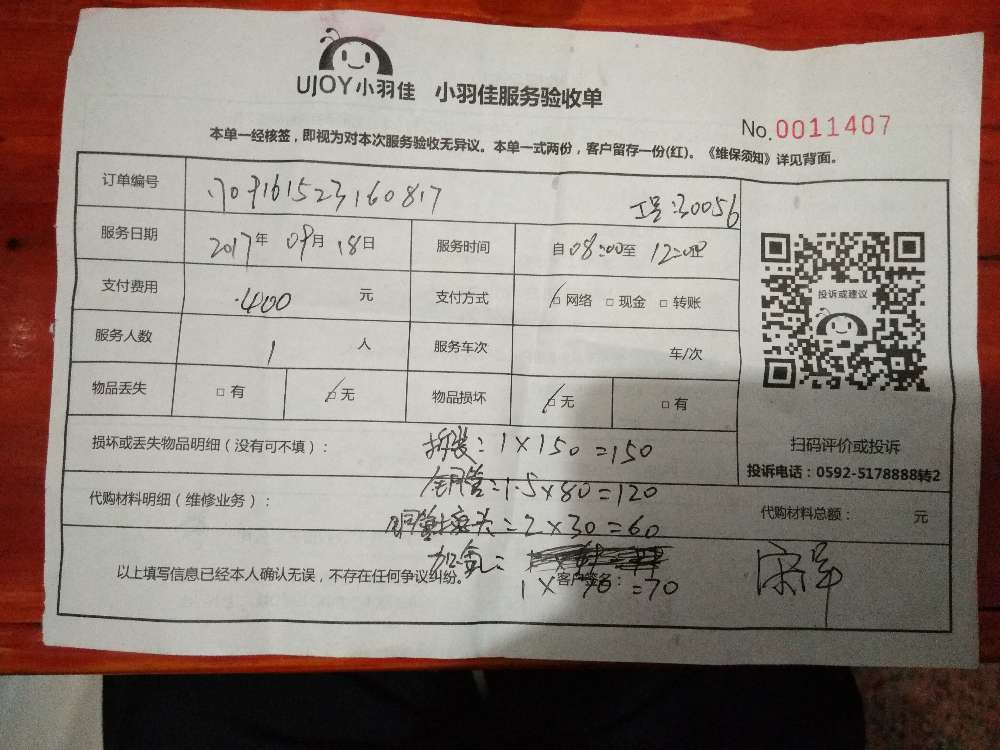 UJOY小羽佳 小羽佳服务验收单
No.0011407
本单一经核签，即视为对本次服务验收无异议。本单一式两份，客户留存一份(红)。《维保须知》详见背面。
订单编号 工号:30056
服务日期 2017年 09月 18日 服务时间 自 08:00至 12:00止
支付费用 400 元 支付方式 网络 现金 转账
服务人数 1 人 服务车次 车/次
物品丢失 有 无 物品损坏 无 有
投诉或建议
扫码评价或投诉
投诉电话：0592-5178888转2
损坏或丢失物品明细（没有可不填）：
拆装：1×150=150
铜管：1.5×80=120
代购材料明细（维修业务）： 代购材料总额： 元
=2×30=60
加氟：
以上填写信息已经本人确认无误，不存在任何争议纠纷。 客户签名：
1×70=70